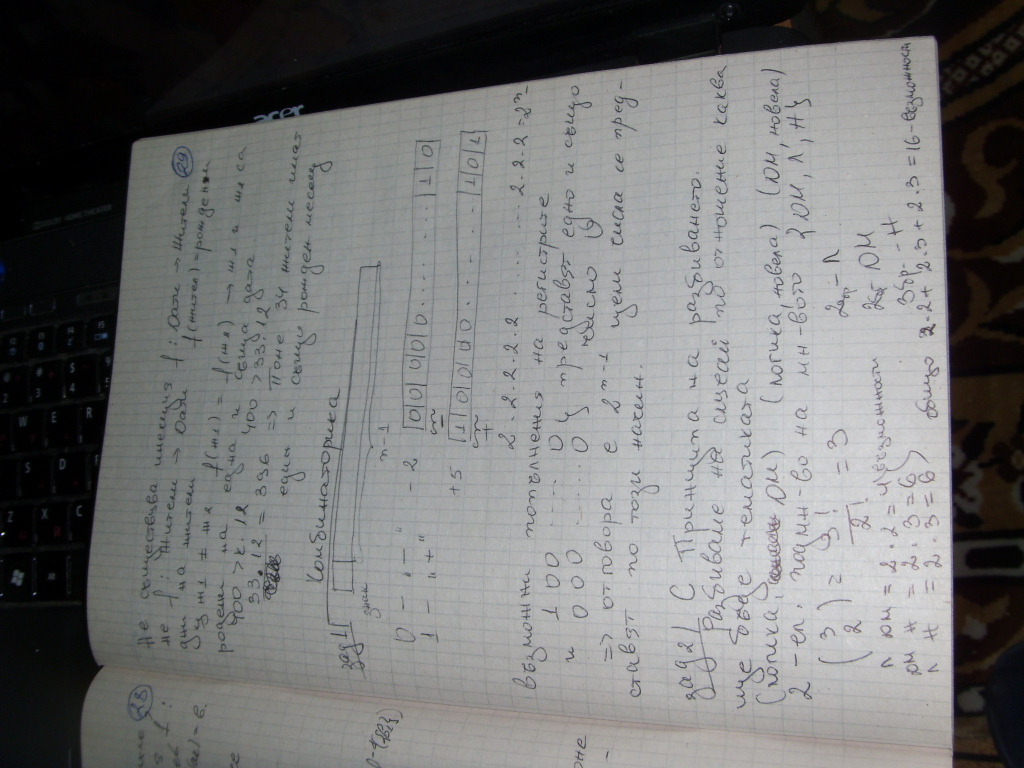 Не съществува инекция f: Дати → Жители 29
не f: Жители → Дати f(жител) = рожден ден
ж1 ≠ ж2 f(ж1) = f(ж2) → ж1 и ж2 са
родени на една и съща дата
400 > k.12 400 > 33.12
33.12 = 396 => поне 34 жители имат
един и същи рожден месец
Комбинаторика
зад 1
знак n-1
0 – „ – “ – 2 0 0 0 0 0 ..... 1 0
1 – „ + “ +5 1 0 0 0 0 ..... 1 0 1
2.2.2.2.2 ...... 2.2.2 =2ⁿ-
възможни попълнения на регистрите
и 1 0 0 ..... 0 } представят едно и също
0 0 0 ..... 0 число 0
=> отговора е 2ⁿ-1 цели числа се пред-
ставят по този начин.
зад 2 С Принципа на разбиването.
Разбиване на случай по отношение каква
ще бъде тематиката
(логика, ЮМ) (логика, новела) (ЮМ, новела)
2-ел. подмн-во на мн-вото {ЮМ, Л, Н}
(3 2) = 3! / 2! = 3 2 бр - Л
2 бр ЮМ
3 бр - Н
Л ЮМ = 2.2 = 4 възможности
ЮМ Н = 2.3 = 6
Л Н = 2.3 = 6 общо 2.2+2.3+2.3=16-възможност
28
acer